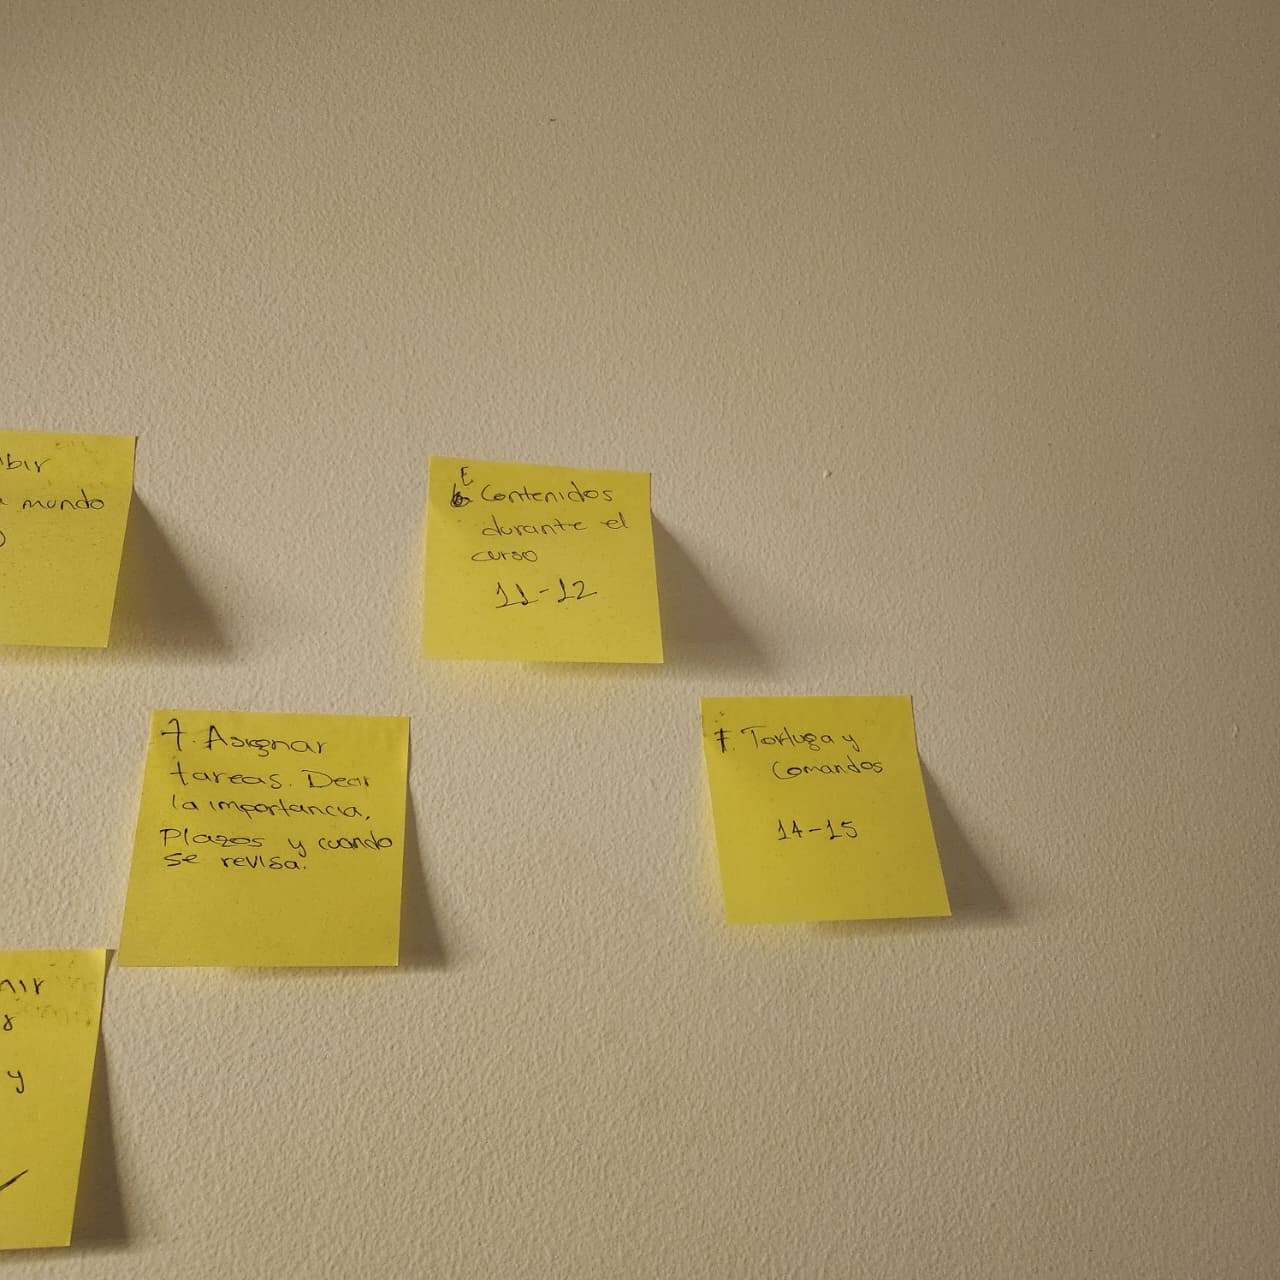 mundo
E
Contenidos
durante el
curso
11-12
7. Asignar
tareas. Decir
la importancia,
Plazos y cuando
se revisa.
F. Tortuga y
Comandos
14-15
y